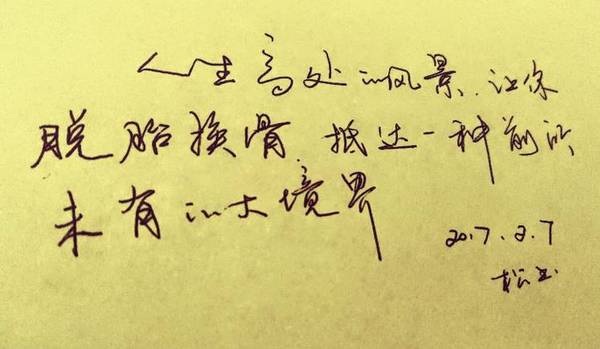 人生高处的风景、让你
脱胎换骨,抵达一种前所
未有的大境界
2017.2.7
松